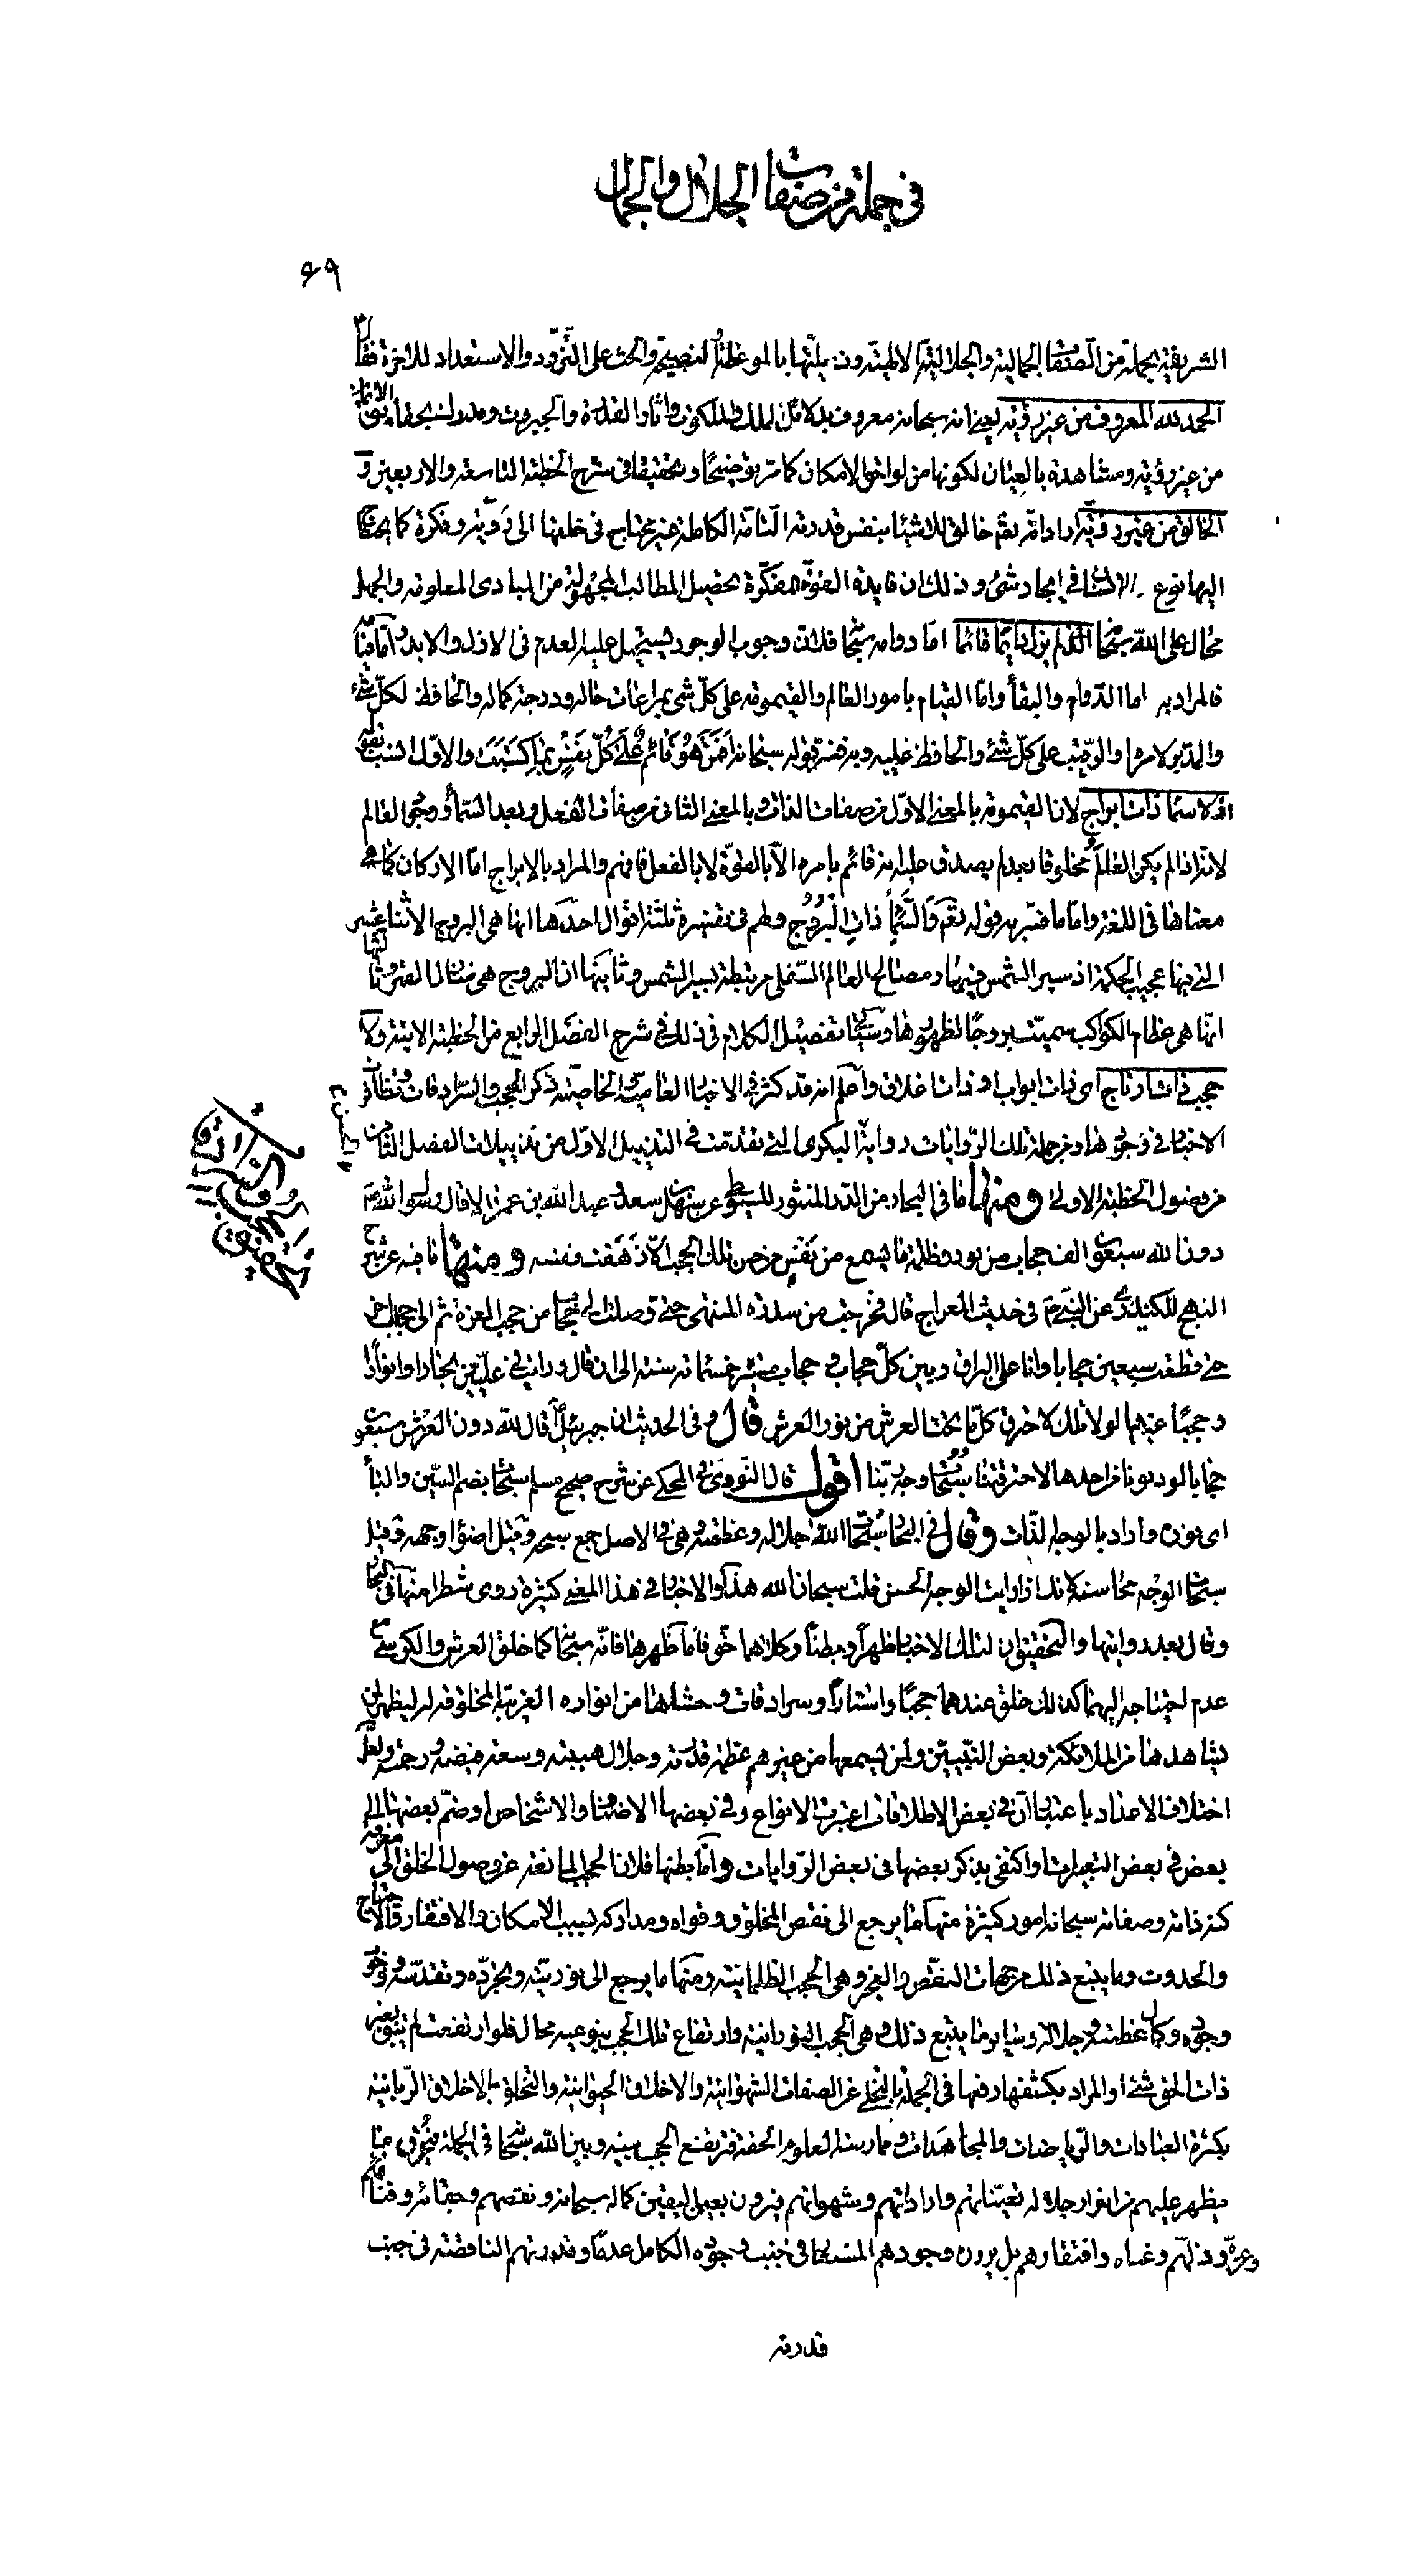 في جملة من صفات الجلال والجمال
۶۹
الشريفة بجملة من الصفات الجمالية والجلالية الالهية دون يليها بالموعظة والنصيحة والحث على التزود والاستعداد للاخرة فقال
الحمد لله المعروف من غير رؤية يعني انه سبحانه معروف بدلائل الملك والملكوت واثار القدرة والجبروت ومدرك بحقايق الايمان
من غير رؤية ومشاهدة بالعيان لكونها من لواحق الامكان كما مر توضيحا وتحقيقا في شرح الخطبة التاسعة والاربعين و
الخالق من غير روية اراد انه تعالى خالق للاشياء بنفس قدرته التامة الكاملة غير محتاج في خلقها الى روية وفكرة كما يحتاج
اليها نوع الانسان في ايجاد شيء وذلك ان فايدة القوة المفكرة تحصيل المطالب المجهولة من المبادى المعلومة والجهل
محال على الله سبحانه الذي لم يزل دائما قائما اما دوامه سبحانه فلان وجوب الوجود يستحيل عليه العدم في الازل والابد واما قيامه
فالمراد به اما الدوام والبقاء واما القيام بامور العالم والقيمومة على كل شيء بمراعات حاله ودرجة كماله والحافظ لكل شيء
والمدبر لامره او الرقيب على كل شيء والحافظ عليه وبه فسر قوله سبحانه افمن هو قائم على كل نفس بما كسبت والاول انسب بقوله
اذ لا سماء ذات ابراج لان القيمومة بالمعنى الاول من صفات الذات وبالمعنى الثاني من صفات الفعل وبعد السماء وجمى العالم
لانه اذا لم يكن العالم مخلوقا بعد لم يصدق عليه انه قائم بامره الا بالقوة لا بالفعل فافهم والمراد بالابراج اما الاركان كما هى
معناها في اللغة واما ما فسر به قوله تعالى والسماء ذات البروج ولهم في تفسيره ثلثة اقوال احدها انها هى البروج الاثنا عشر
التي فيها عجيب الحكمة اذ سير الشمس فيها ومصالح العالم السفلى مرتبطة بسير الشمس وثانيها ان البروج هى منازل القمر وثالثها
انها هى عظام الكواكب سميت بروجا لظهورها وسيأتي تفصيل الكلام في ذلك في شرح الفصل الرابع من الخطبة الاتية ولا
حجب ذات ارتاج اى ذات ابواب او ذات اغلاق واعلم انه قد كثر في الاخبار العامية والخاصية ذكر الحجب والسرادقات وتظافر
الاخبار في وجودها ومن جملة تلك الروايات رواية البكرى التي تقدمت في التذييل الاول من تذييلات الفصل الثامن
من فصول الخطبة الاولى ومنها ما في البحار من الدر المنثور للسيوطي عن سهل بن سعد وعبد الله بن عمر قالا قال رسول الله ص
دون الله سبعون الف حجاب من نور وظلمة ما يسمع من نفس من حس تلك الحجب الا زهقت نفسه ومنها ما فيه عن شرح
النهج للكيدرى عن النبى ص في حديث المعراج قال فخرجت من سدرة المنتهى حتى وصلت الى حجاب من حجب العزة ثم الى حجاب اخر
حتى قطعت سبعين حجابا وانا على البراق وبين كل حجاب و حجاب مسيرة خمسمائة سنة الى ان قال ورايت في عليين بحارا وانوارا
وحجبا غيرها لولا تلك لاحترق كل ما تحت العرش من نور العرش قال وفي الحديث ان جبرئيل قال لله دون العرش سبعون
حجابا لو دنونا من احدها لاحرقتنا سبحات وجه ربنا اقول قال النووى في المحكى عن شرح صحيح مسلم سبحات بضم السين والباء
اى نوره واراد بالوجه الذات وقال في البحار سبحات الله جلاله وعظمته وهى في الاصل جمع سبحة وقيل اضواء وجهه وقيل
سبحات الوجه محاسنه لانك اذا رايت الوجه الحسن قلت سبحان الله هذا والاخبار في هذا المعنى كثيرة روى شطرا منها في البحار
وقال بعد روايتها والتحقيق ان لتلك الاخبار ظهرا وبطنا وكلاهما حق فاما ظهرها فانه سبحانه كما خلق العرش والكرسى مع
عدم احتياجه اليهما كذلك خلق عندهما حجبا واستارا وسرادقات وحشاها من انواره الغريبة المخلوقة له ليظهر لمن
يشاهدها من الملائكة وبعض النبيين ولمن يسمعها من غيرهم عظمة قدرته وجلال هيبته وسعة فيضه ورحمته ولعل
اختلاف الاعداد باعتبار ان في بعض الاطلاقات اعتبرت الانواع وفي بعضها الاصناف والاشخاص او ضم بعضها الى
بعض في بعض التعبيرات او اكتفى بذكر بعضها في بعض الروايات واما بطنها فلان الحجب المانعة عن وصول الخلق الى معرفة
كنه ذاته وصفاته سبحانه امور كثيرة منها ما يرجع الى نقص المخلوق وقواه ومداركه بسبب الامكان والافتقار والاحتياج
والحدوث وما يتبع ذلك من جهات النقص والعجز وهى الحجب الظلمانية ومنها ما يرجع الى نوريته وتجرده وتقدسه ووجوب
وجوده وكمال عظمته وجلاله وساير ما يتبع ذلك وهى الحجب النورانية وارتفاع تلك الحجب بنوعيه محال فلو ارتفعت لم يبق بغير
ذات الحق شيء او المراد بكشفها رفعها في الجملة بالتخلى عن الصفات الشهوانية والاخلاق الحيوانية والتخلق بالاخلاق الربانية
بكثرة العبادات والرياضات والمجاهدات وممارسة العلوم الحقة فترتفع الحجب بينه وبين الله سبحانه في الجملة فيحرق ما
يظهر عليهم من انوار جلاله تعيناتهم واراداتهم وشهواتهم فيرون بعين اليقين كماله سبحانه ونقصهم وبقائه وفنائهم
وعزه وذلهم وغناه وافتقارهم بل يرون وجودهم المستعار في جنب وجوده الكامل عدما وقدرتهم الناقصة في جنب
قدرته